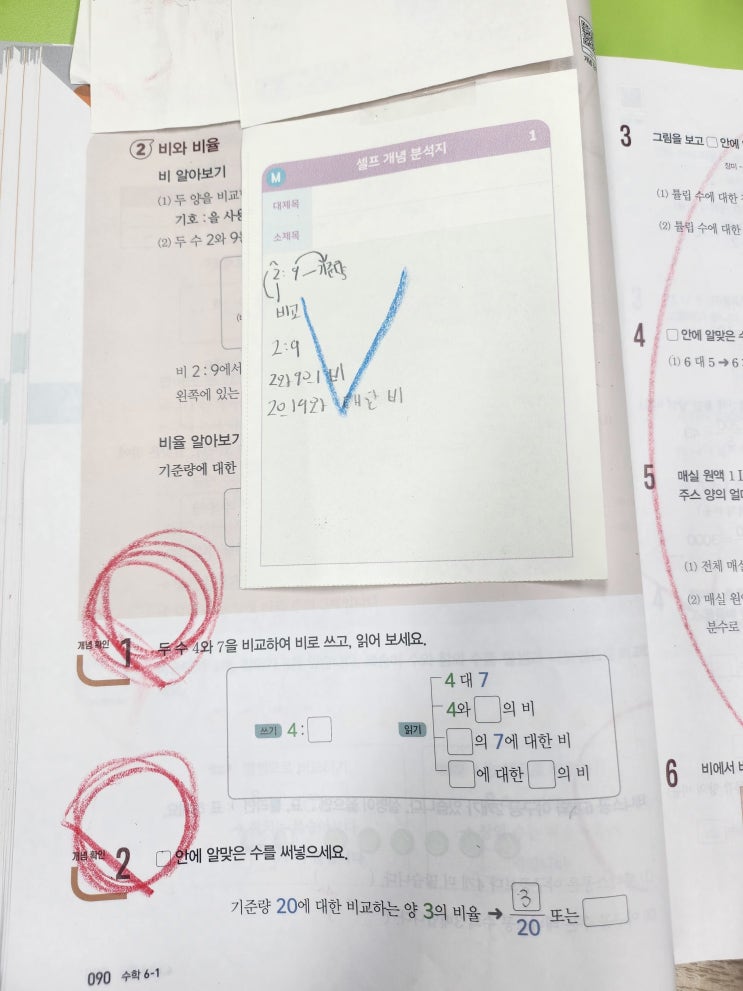 ② 비와 비율
비 알아보기
(1) 두 양을 비교
기호 : 을 사용
(2) 두 수 2와 9
비 2 : 9에서
왼쪽에 있는
비율 알아보기
기준량에 대한
M 셀프 개념 분석지 1
대제목
소제목
2 : 9 기준량
비교
2:9
2와 9의 비
대한 비
개념 확인 1 두 수 4와 7을 비교하여 비로 쓰고, 읽어 보세요.
쓰기 4 : □
읽기
4 대 7
4와 □의 비
□의 7에 대한 비
□에 대한 □의 비
개념 확인 2 □ 안에 알맞은 수를 써넣으세요.
기준량 20에 대한 비교하는 양 3의 비율 → 3/20 또는 □
090 수학 6-1
3 그림을 보고 □ 안에
장미
(1) 튤립 수에 대한
(2) 튤립 수에 대한
4 □ 안에 알맞은
(1) 6 대 5 → 6
5 매실 원액 1
주스 양의
(1) 전체
(2) 매실
분수로
6 비에서